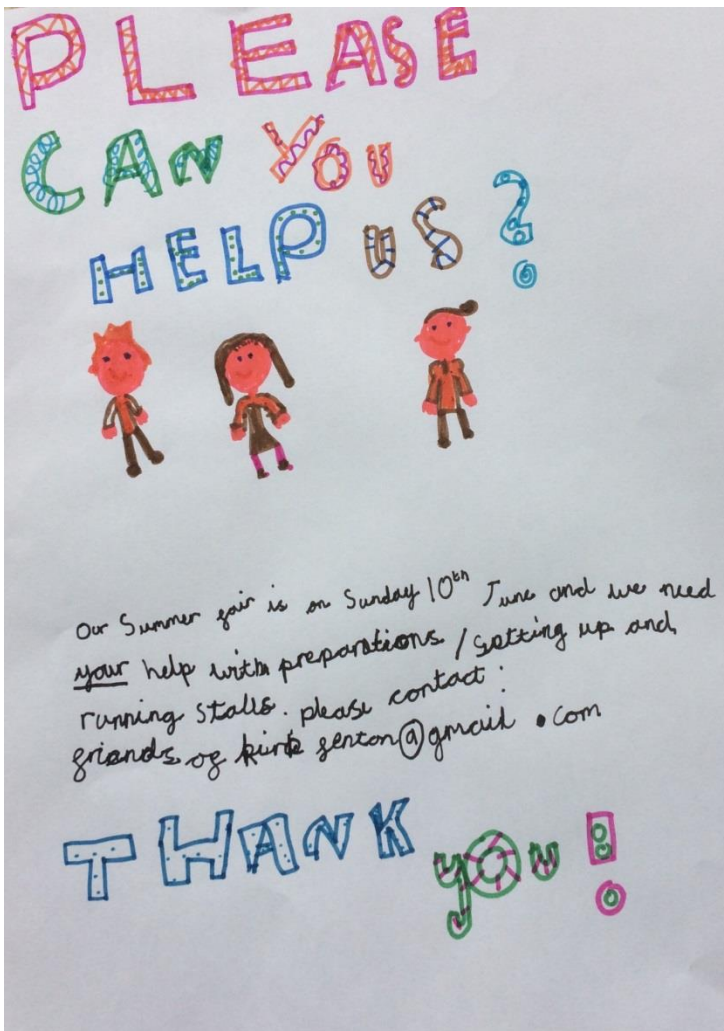 PLEASE
CAN YOU
HELP US?
Our Summer fair is on Sunday 10th June and we need
your help with preparations / setting up and
running stalls. please contact:
friends of kirk fenton@gmail.com
THANK you!